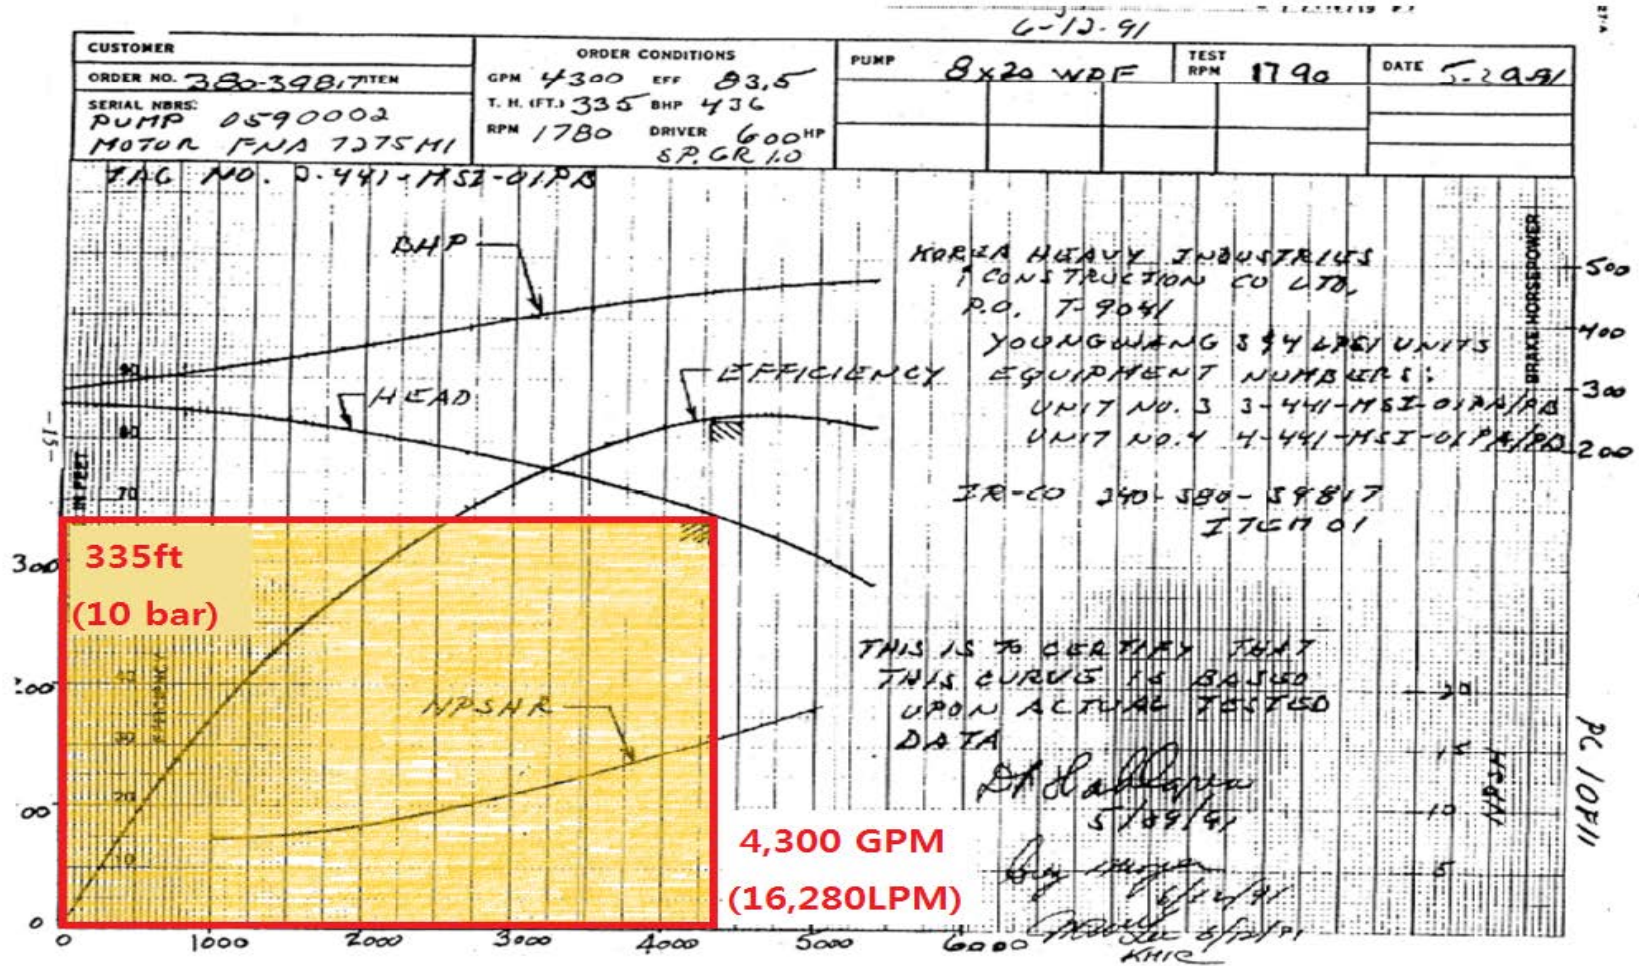 6-12-91
CUSTOMER
ORDER NO. 380-39817 ITEM
SERIAL NBRS:
PUMP 0590002
MOTOR FNA 7275M1
ORDER CONDITIONS
GPM 4300 EFF 83.5
T. H. (FT.) 335 BHP 436
RPM 1780 DRIVER 600 HP
SP. GR 1.0
PUMP 8x20 WDF
TEST RPM 1790
DATE 5-29-91
TAG NO. 441-MSI-01PB
BHP
HEAD
EFFICIENCY
NPSHR
KOREA HEAVY INDUSTRIES
& CONSTRUCTION CO LTD.
P.O. T-9041
YOUNGWANG 3 & 4 LPSI UNITS
EQUIPMENT NUMBERS:
UNIT NO. 3 3-441-MSI-01PA/PB
UNIT NO. 4 4-441-MSI-01PA/PB
IR-CO 240-380-39817
ITEM 01
THIS IS TO CERTIFY THAT
THIS CURVE IS BASED
UPON ACTUAL TESTED
DATA
5/29/91
6/12/91
6/12/91
KHIC
335ft
(10 bar)
4,300 GPM
(16,280LPM)
BRAKE HORSEPOWER
500
400
300
200
20
15
10
5
NPSH
PC 1 OF 11
-15-
IN FEET
90
80
70
300
200
00
0
40
30
20
10
EFFICIENCY
0 1000 2000 3000 4000 5000 6000